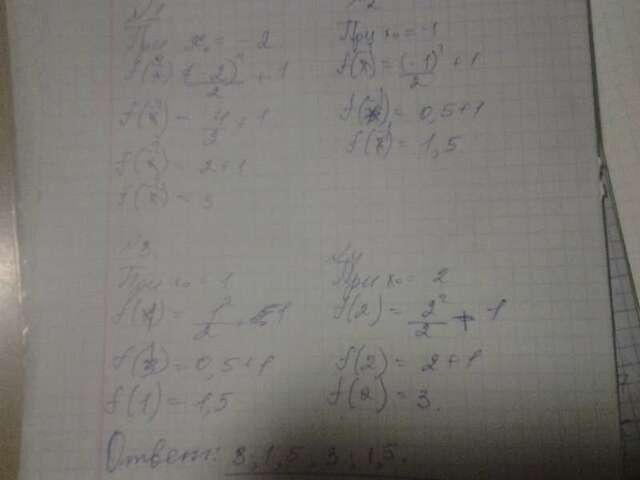 №1
При x₀ = -2
f(-2) = (-2)²/2 + 1
f(-2) = 4/2 + 1
f(-2) = 2+1
f(-2) = 3
№2
При x₀ = -1
f(-1) = (-1)²/2 + 1
f(-1) = 0,5+1
f(-1) = 1,5
№3
При x₀ = 1
f(1) = 1²/2 + 1
f(1) = 0,5+1
f(1) = 1,5
№4
При x₀ = 2
f(2) = 2²/2 + 1
f(2) = 2+1
f(2) = 3.
Ответ: 3; 1,5; 3; 1,5.